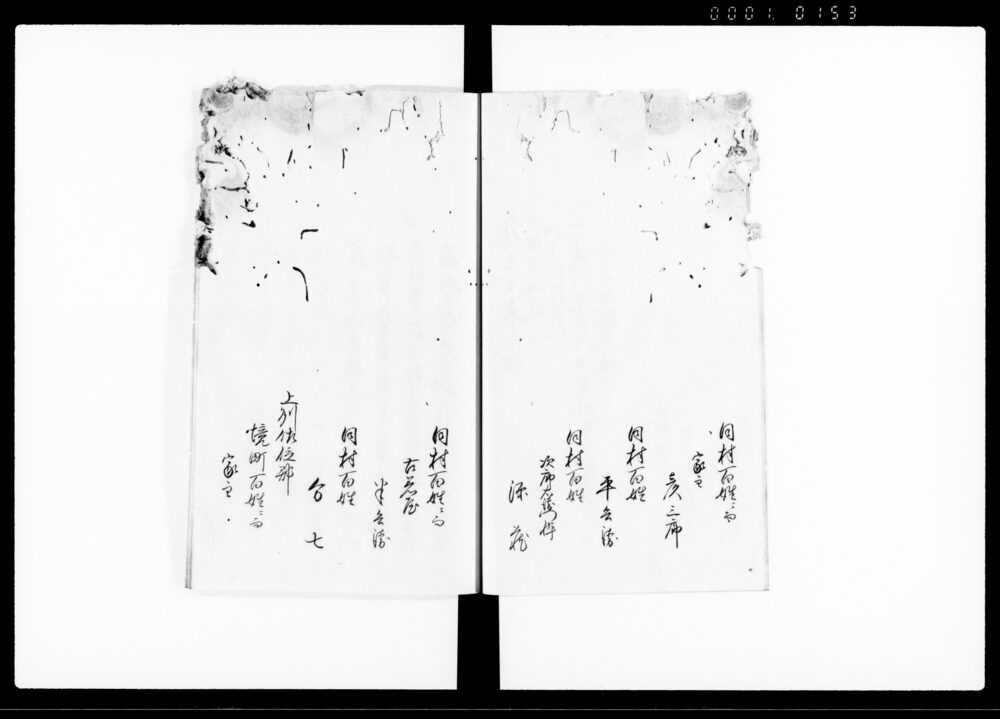 0001. 0153
同村百姓ニ而
家主
亥三郎
同村百姓
平兵衛
同村百姓
次郎左衛門忰
源蔵
同村百姓ニ而
半兵衛
同村百姓
七
上州佐位郡
境町百姓ニ而
家主